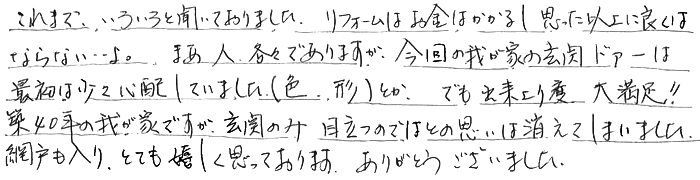 これまで、いろいろと聞いておりました。リフォームはお金はかかるし思った以上に良くは
ならない…よ。まあ人各々でありますが、今回の我が家の玄関ドアーは
最初は少々心配していました(色、形)とか、でも出来上り度大満足!!
築40年の我が家ですが、玄関のみ目立つのではとの思いは消えてしまいました。
網戸も入り、とても嬉しく思っております。ありがとうございました。